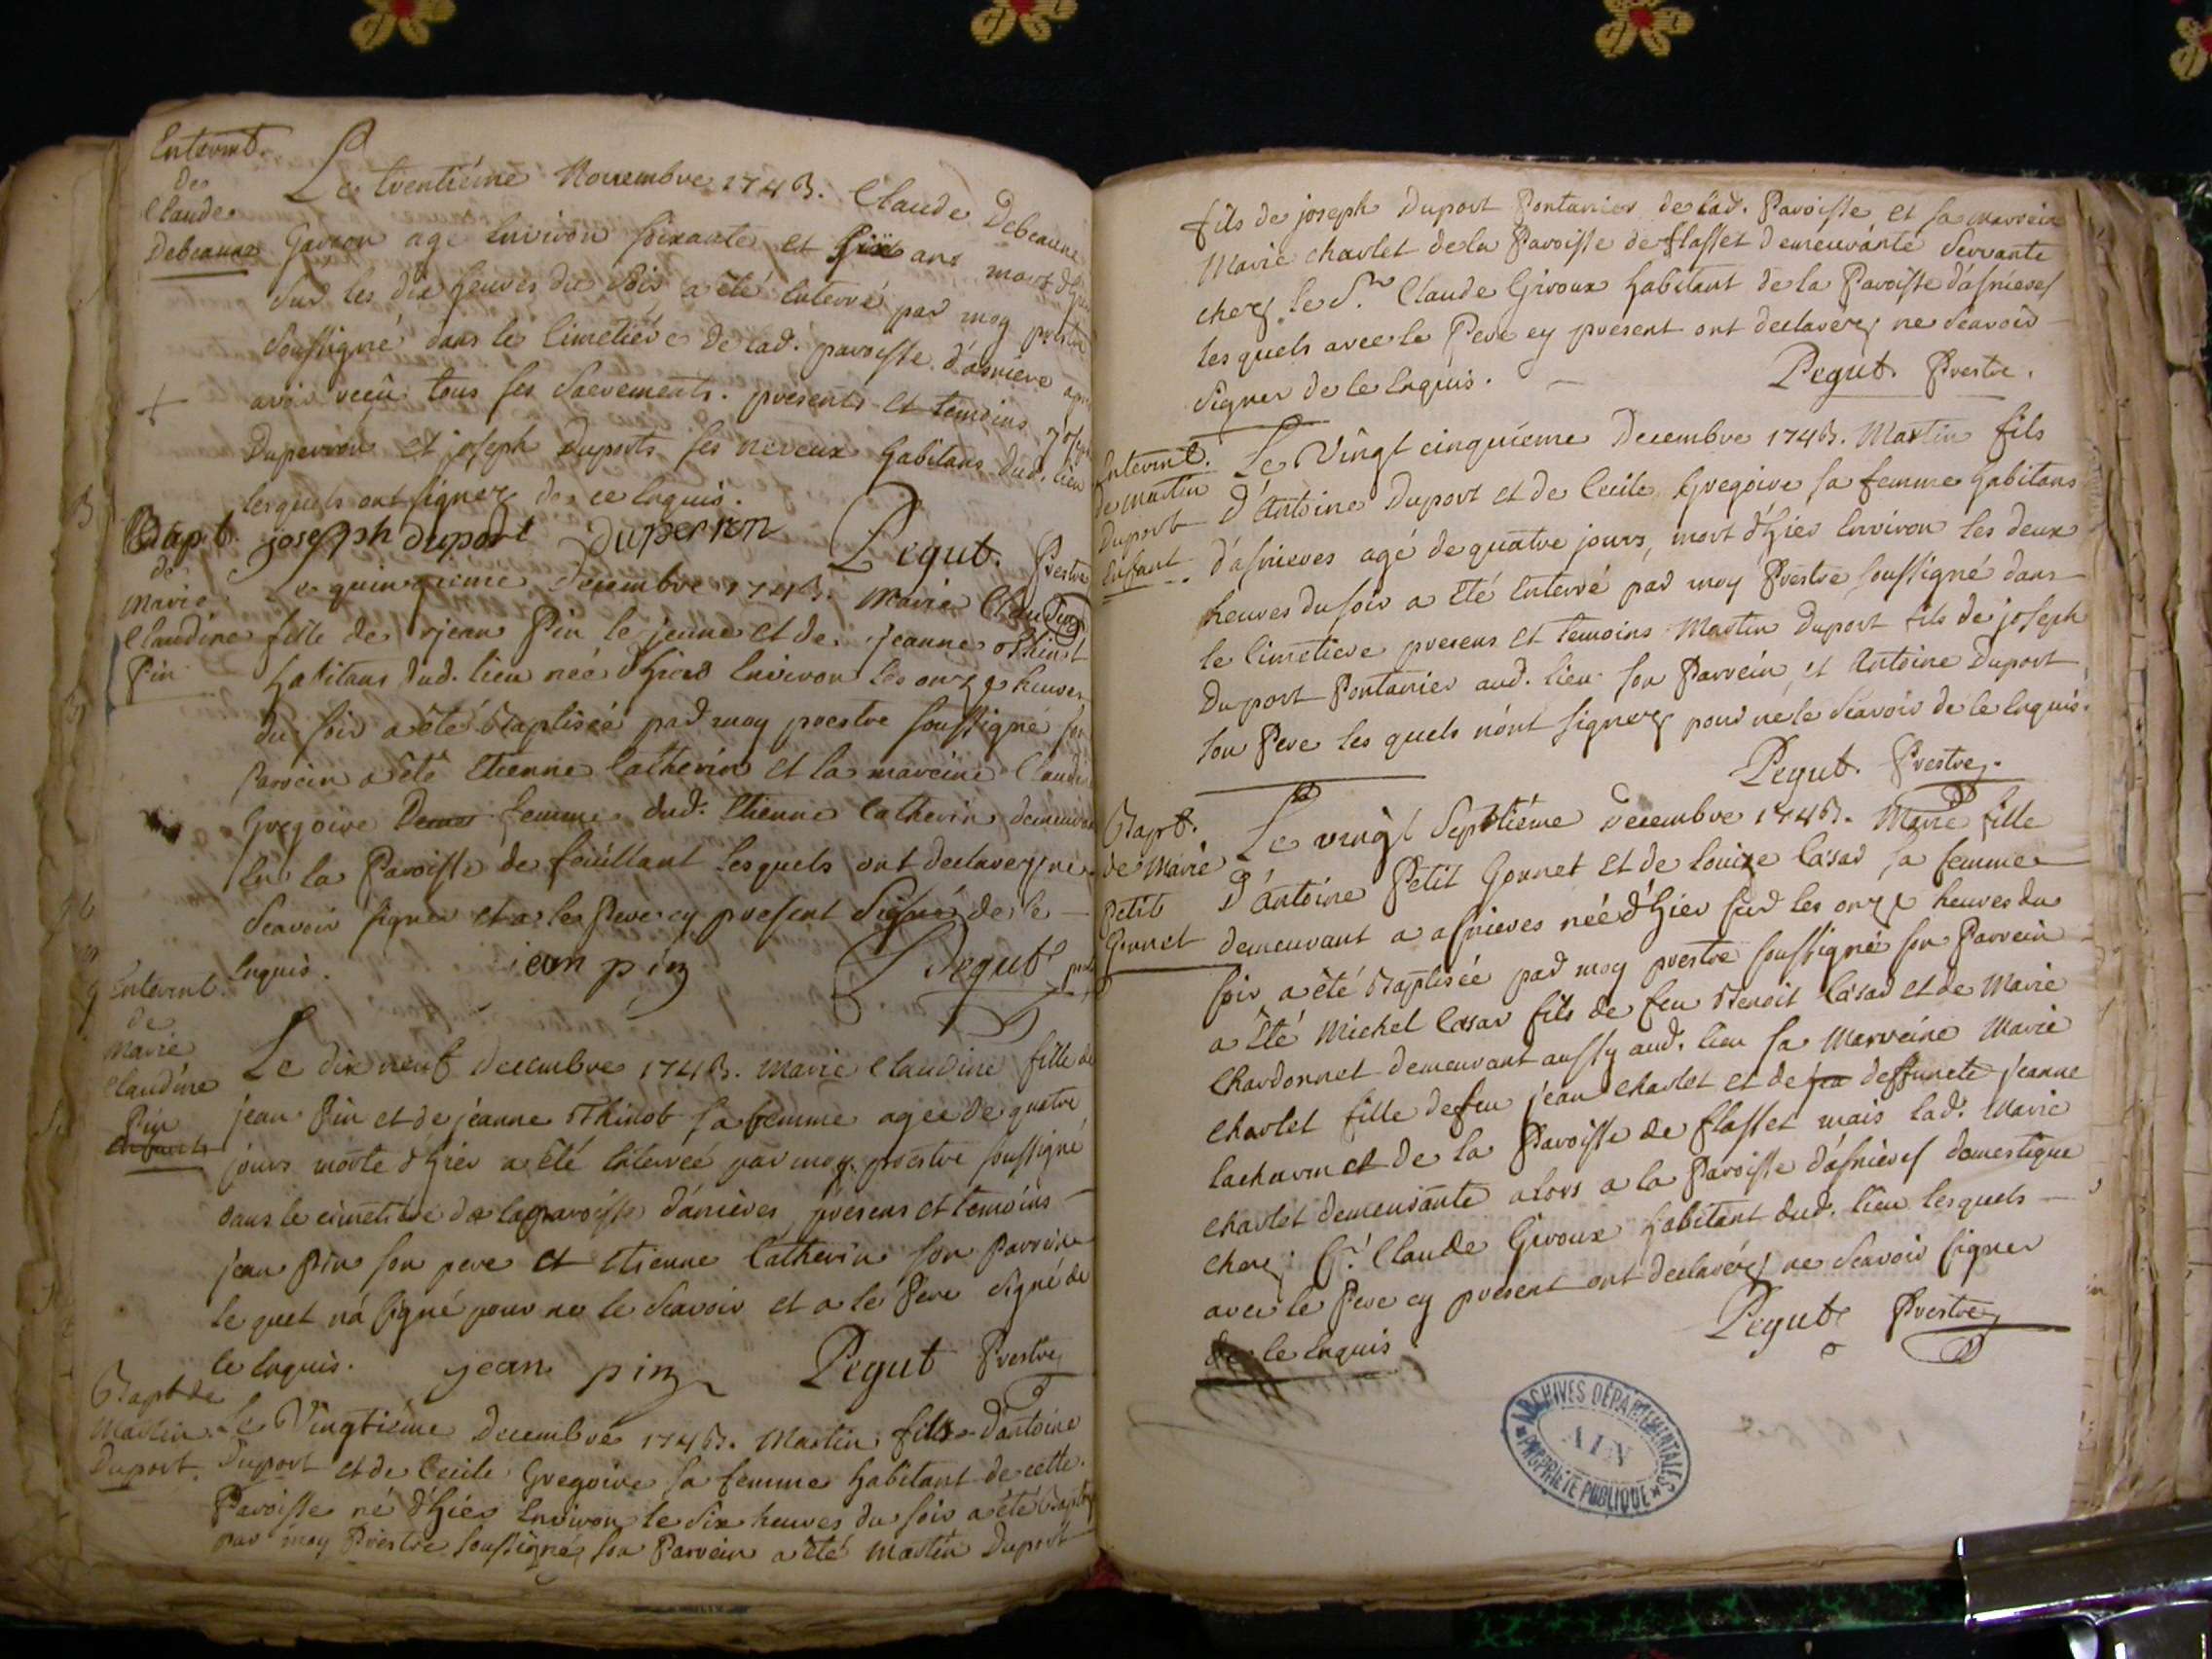 Enterrmt.
de
Claude
Debeaune
Le trentiéme Novembre 1743. Claude Debeaune
Garcon agé Environ soixante et six ans mort d'hier
Sur les dix heures du soir a été Enterré par moy prestre
Soussigné dans le Cimetiére de lad. paroisse d'asniere apres
avoir reçû tous ses Sacrements. presents et temoins
Duperron et joseph Duports ses neveux habitans dud. lieu
lesquels ont signez de ce Enquis.
joseph duport duperron Pegut. Prestre
Bapt.
de
Marie
Claudine
Pin
Le quinzieme decembre 1743. Marie Claudine
fille de jean Pin le jeune et de jeanne
habitans dud. lieu née d'hier Environ les onze heures
du soir a été Baptisée par moy prestre soussigné son
Parrein a été Etienne Catherin et la mareine Claudine
Gregoire femme dud. Etienne Catherin demeurant
En la Paroisse de feüillant lesquels ont declarez ne
Scavoir signer et a le Pere cy present Signé de le
Enquis. jean pin Pegut prestre
Enterrmt.
de
Marie
Claudine
Pin
Le dix neuf decembre 1743. Marie Claudine fille de
jean Pin et de jeanne sa femme agée de quatre
jours morte d'hier a été Enterreé par moy prestre soussigné
dans le cimetiére de la paroisse d'anieres presens et temoins
jean Pin son pere et Etienne Catherin son Parrein
lequel n'a signé pour ne le Scavoir et a le Pere signé de
le Enquis. jean pin Pegut Prestre
Bapt de
Martin
Duport
Le Vingtiéme Decembre 1743. Martin fils d'antoine
Duport et de Cecile Gregoire sa femme habitant de cette
Paroisse né d'hier Environ le six heures du soir a été Baptisé
par moy Prestre soussigné son Parrein a été Martin Duport
fils de joseph Duport Pontanier de lad. Paroisse et sa marreine
Marie charlet de la Paroisse de flasset demeurante Servante
chez le Sr. Claude Giroux habitant de la Paroisse d'asnieres
lesquels avec le Pere cy present ont declarez ne Scavoir
Signer de le Enquis. Pegut. Prestre.
Enterrmt.
de Martin
Duport
Enfant
Le Vingt cinquieme Decembre 1743. Martin fils
d'Antoine Duport et de Cecile Gregoire sa femme habitans
d'asnieres agé de quatre jours, mort d'hier Environ les deux
heures du soir a été Enterré par moy Prestre soussigné dans
le Cimetiere presens et temoins Martin Duport fils de joseph
Duport Pontanier aud. lieu son Parrein, et Antoine Duport
son Pere les quels n'ont signez pour ne le Scavoir de le Enquis.
Pegut. Prestre.
Bapt.
de Marie
Petit
Gonnet
Le vingt Septiéme decembre 1743. Marie fille
d'Antoine Petit Gonnet et de Louize Casar sa femme
demeurant a asnieres née d'hier sur les onze heures du
soir a été Baptisée par moy prestre soussigné son Parrein
a été Michel Casar fils de feu Benoit Casar et de Marie
Chardonnet demeurant aussy aud. lieu sa Marreine Marie
Charlet fille de feu jean Charlet et de deffuncte jeanne
de la Paroisse de flasset mais lad. Marie
charlet demeurante alors a la Paroisse d'asnieres domestique
chez Sr. Claude Giroux habitant dud. lieu lesquels
avec le Pere cy present ont declarez ne Scavoir signer
de le Enquis Pegut Prestre
ARCHIVES DÉPARTEMENTALES
AIN
PROPRIÉTÉ PUBLIQUE